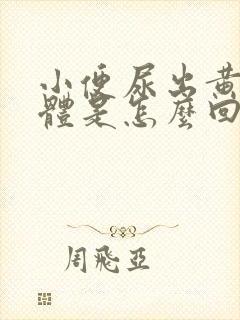 小便尿出黄
體是怎麼回
周飛亞